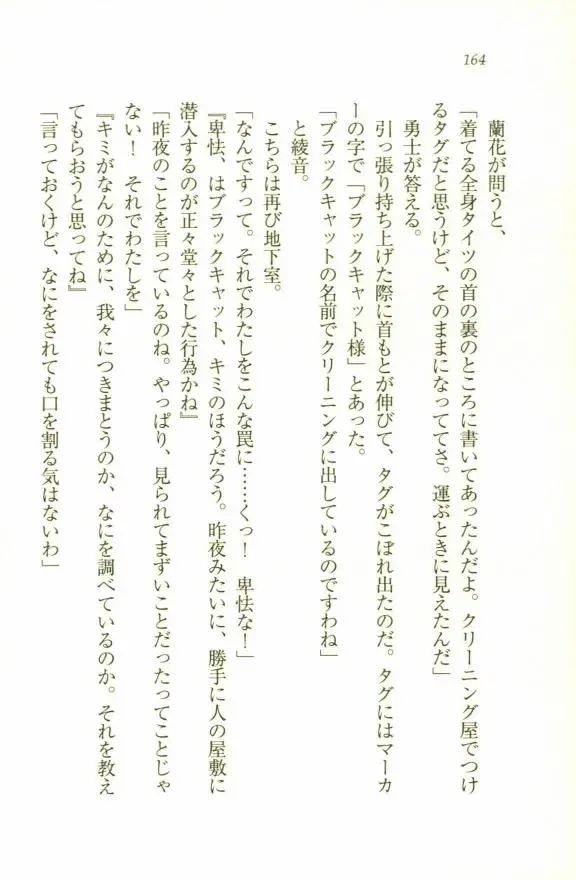 164
蘭花が問うと、
「着てる全身タイツの首の裏のところに書いてあったんだよ。クリーニング屋でつけ
るタグだと思うけど、そのままになっててさ。運ぶときに見えたんだ」
勇士が答える。
引っ張り持ち上げた際に首もとが伸びて、タグがこぼれ出たのだ。タグにはマーカ
ーの字で「ブラックキャット様」とあった。
「ブラックキャットの名前でクリーニングに出しているのですわね」
と綾音。
こちらは再び地下室。
「なんですって。それでわたしをこんな罠に……くっ！　卑怯な！」
『卑怯、はブラックキャット、キミのほうだろう。昨夜みたいに、勝手に人の屋敷に
潜入するのが正々堂々とした行為かね』
「昨夜のことを言っているのね。やっぱり、見られてまずいことだったってことじゃ
ない！　それでわたしを」
『キミがなんのために、我々につきまとうのか、なにを調べているのか。それを教え
てもらおうと思ってね』
「言っておくけど、なにをされても口を割る気はないわ」